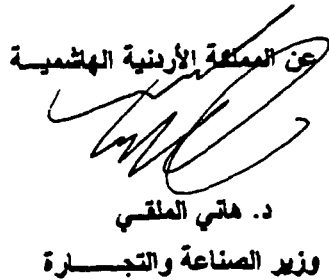 عن المملكة الأردنية الهاشميـــة
د. هاني الملقـــي
وزير الصناعة والتجـــــارة